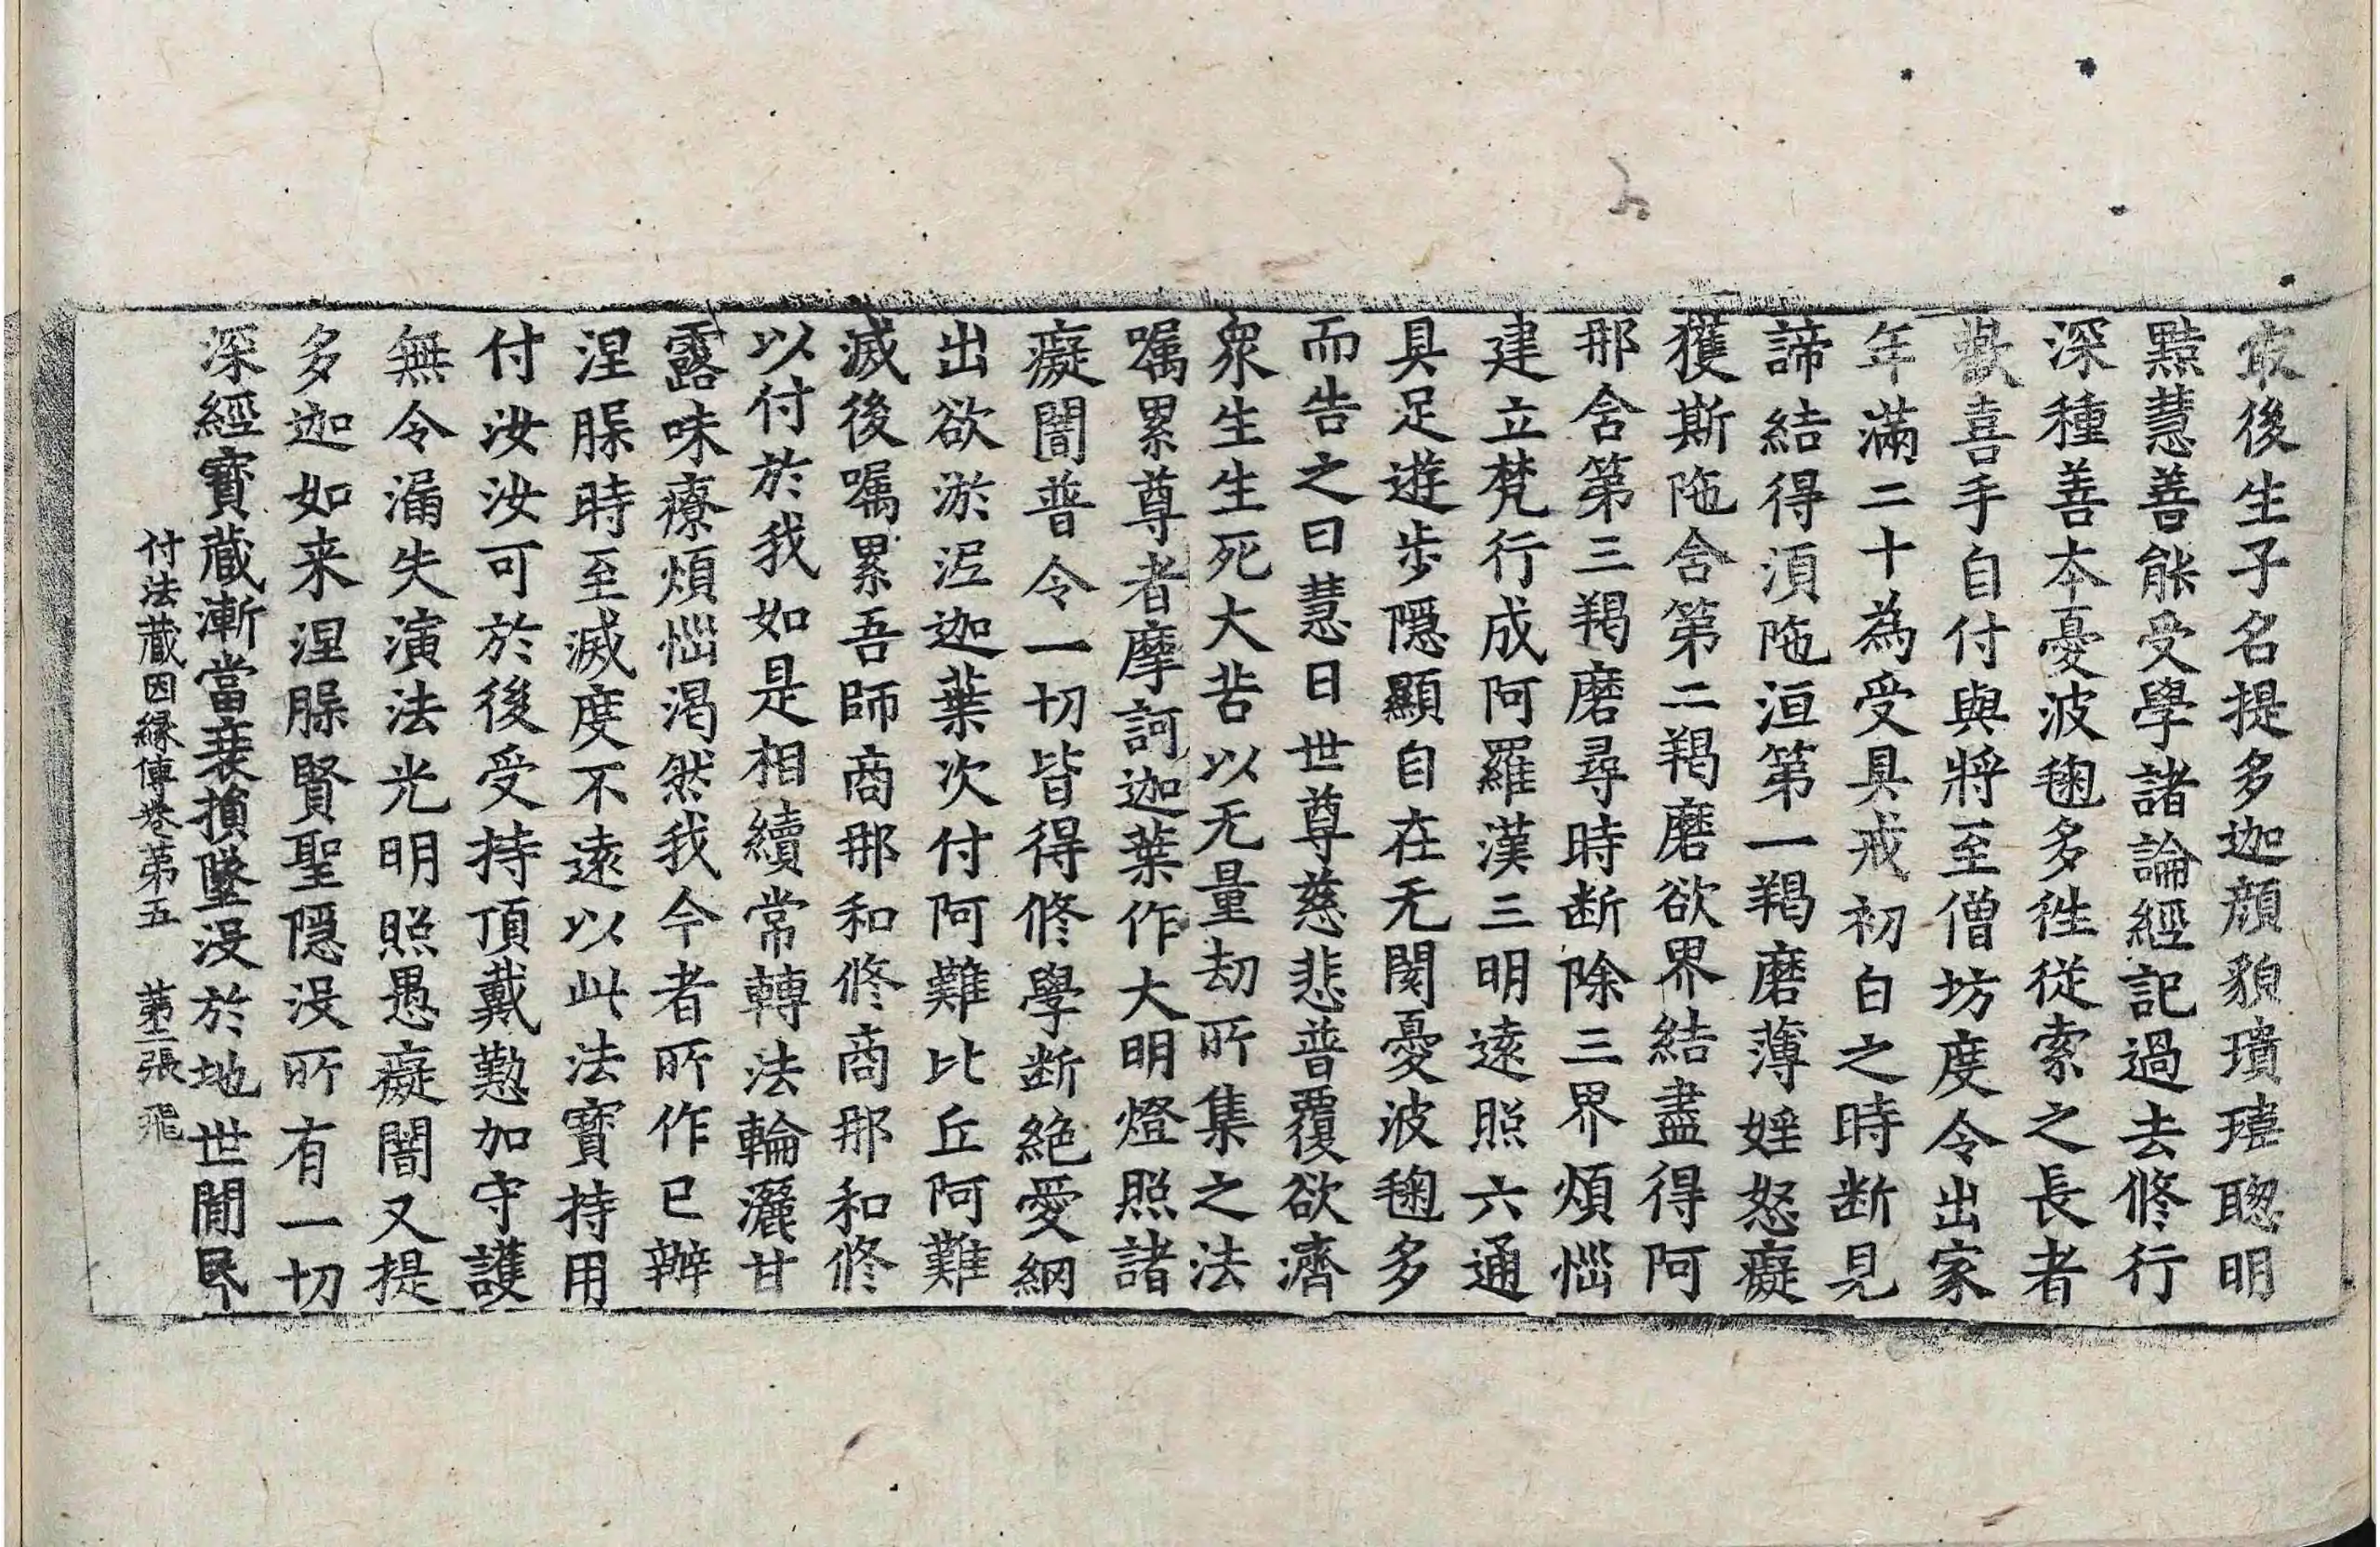 㝡後生子名提多迦顔貌瓌瑋聦明
黠慧善能受學諸論經記過去修行
深種善本憂波毱多往從索之長者
歡喜手自付與將至僧坊度令出家
年滿二十為受具戒初白之時断見
諦結得湏陁洹第一羯磨薄婬怒癡
獲斯陁含第二羯磨欲界結盡得阿
那含第三羯磨尋時断除三界煩惱
建立梵行成阿羅漢三明逺照六通
具足遊步隱顯自在无閡憂波毱多
而告之曰慧日世尊慈悲普覆欲濟
衆生生死大苦以无量劫所集之法
嘱累尊者摩訶迦葉作大明燈照諸
癡闇普令一切皆得修學断絶愛網
出欲淤泥迦葉次付阿難比丘阿難
滅後嘱累吾師商那和修商那和修
以付於我如是相續常轉法輪灑甘
露味療煩惱渴然我今者所作已辦
涅槃時至滅度不逺以此法寳持用
付汝汝可於後受持頂戴懃加守護
無令漏失演法光明照愚癡闇又提
多迦如来涅槃賢聖隱没所有一切
深經寳蔵漸當衰損墜没於地世閒民
付法蔵因縁傳卷第五 第二張 飛